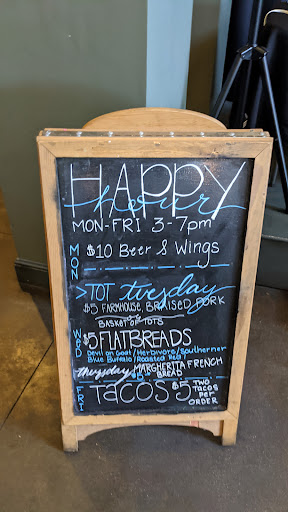 HAPPY
hour
MON-FRI 3-7pm
MON
$10 Beer & Wings
>TOT tuesday
$5 FARMHOUSE, BRAISED PORK
BASKET OF TOTS
WED
$5 FLATBREADS
Devil on Goat/Herbivore/Southerner
Blue Buffalo/Roasted Red/
thursday MARGHERITA FRENCH
BREAD
FRI
TACOS $5 TWO
TACOS
PER
ORDER